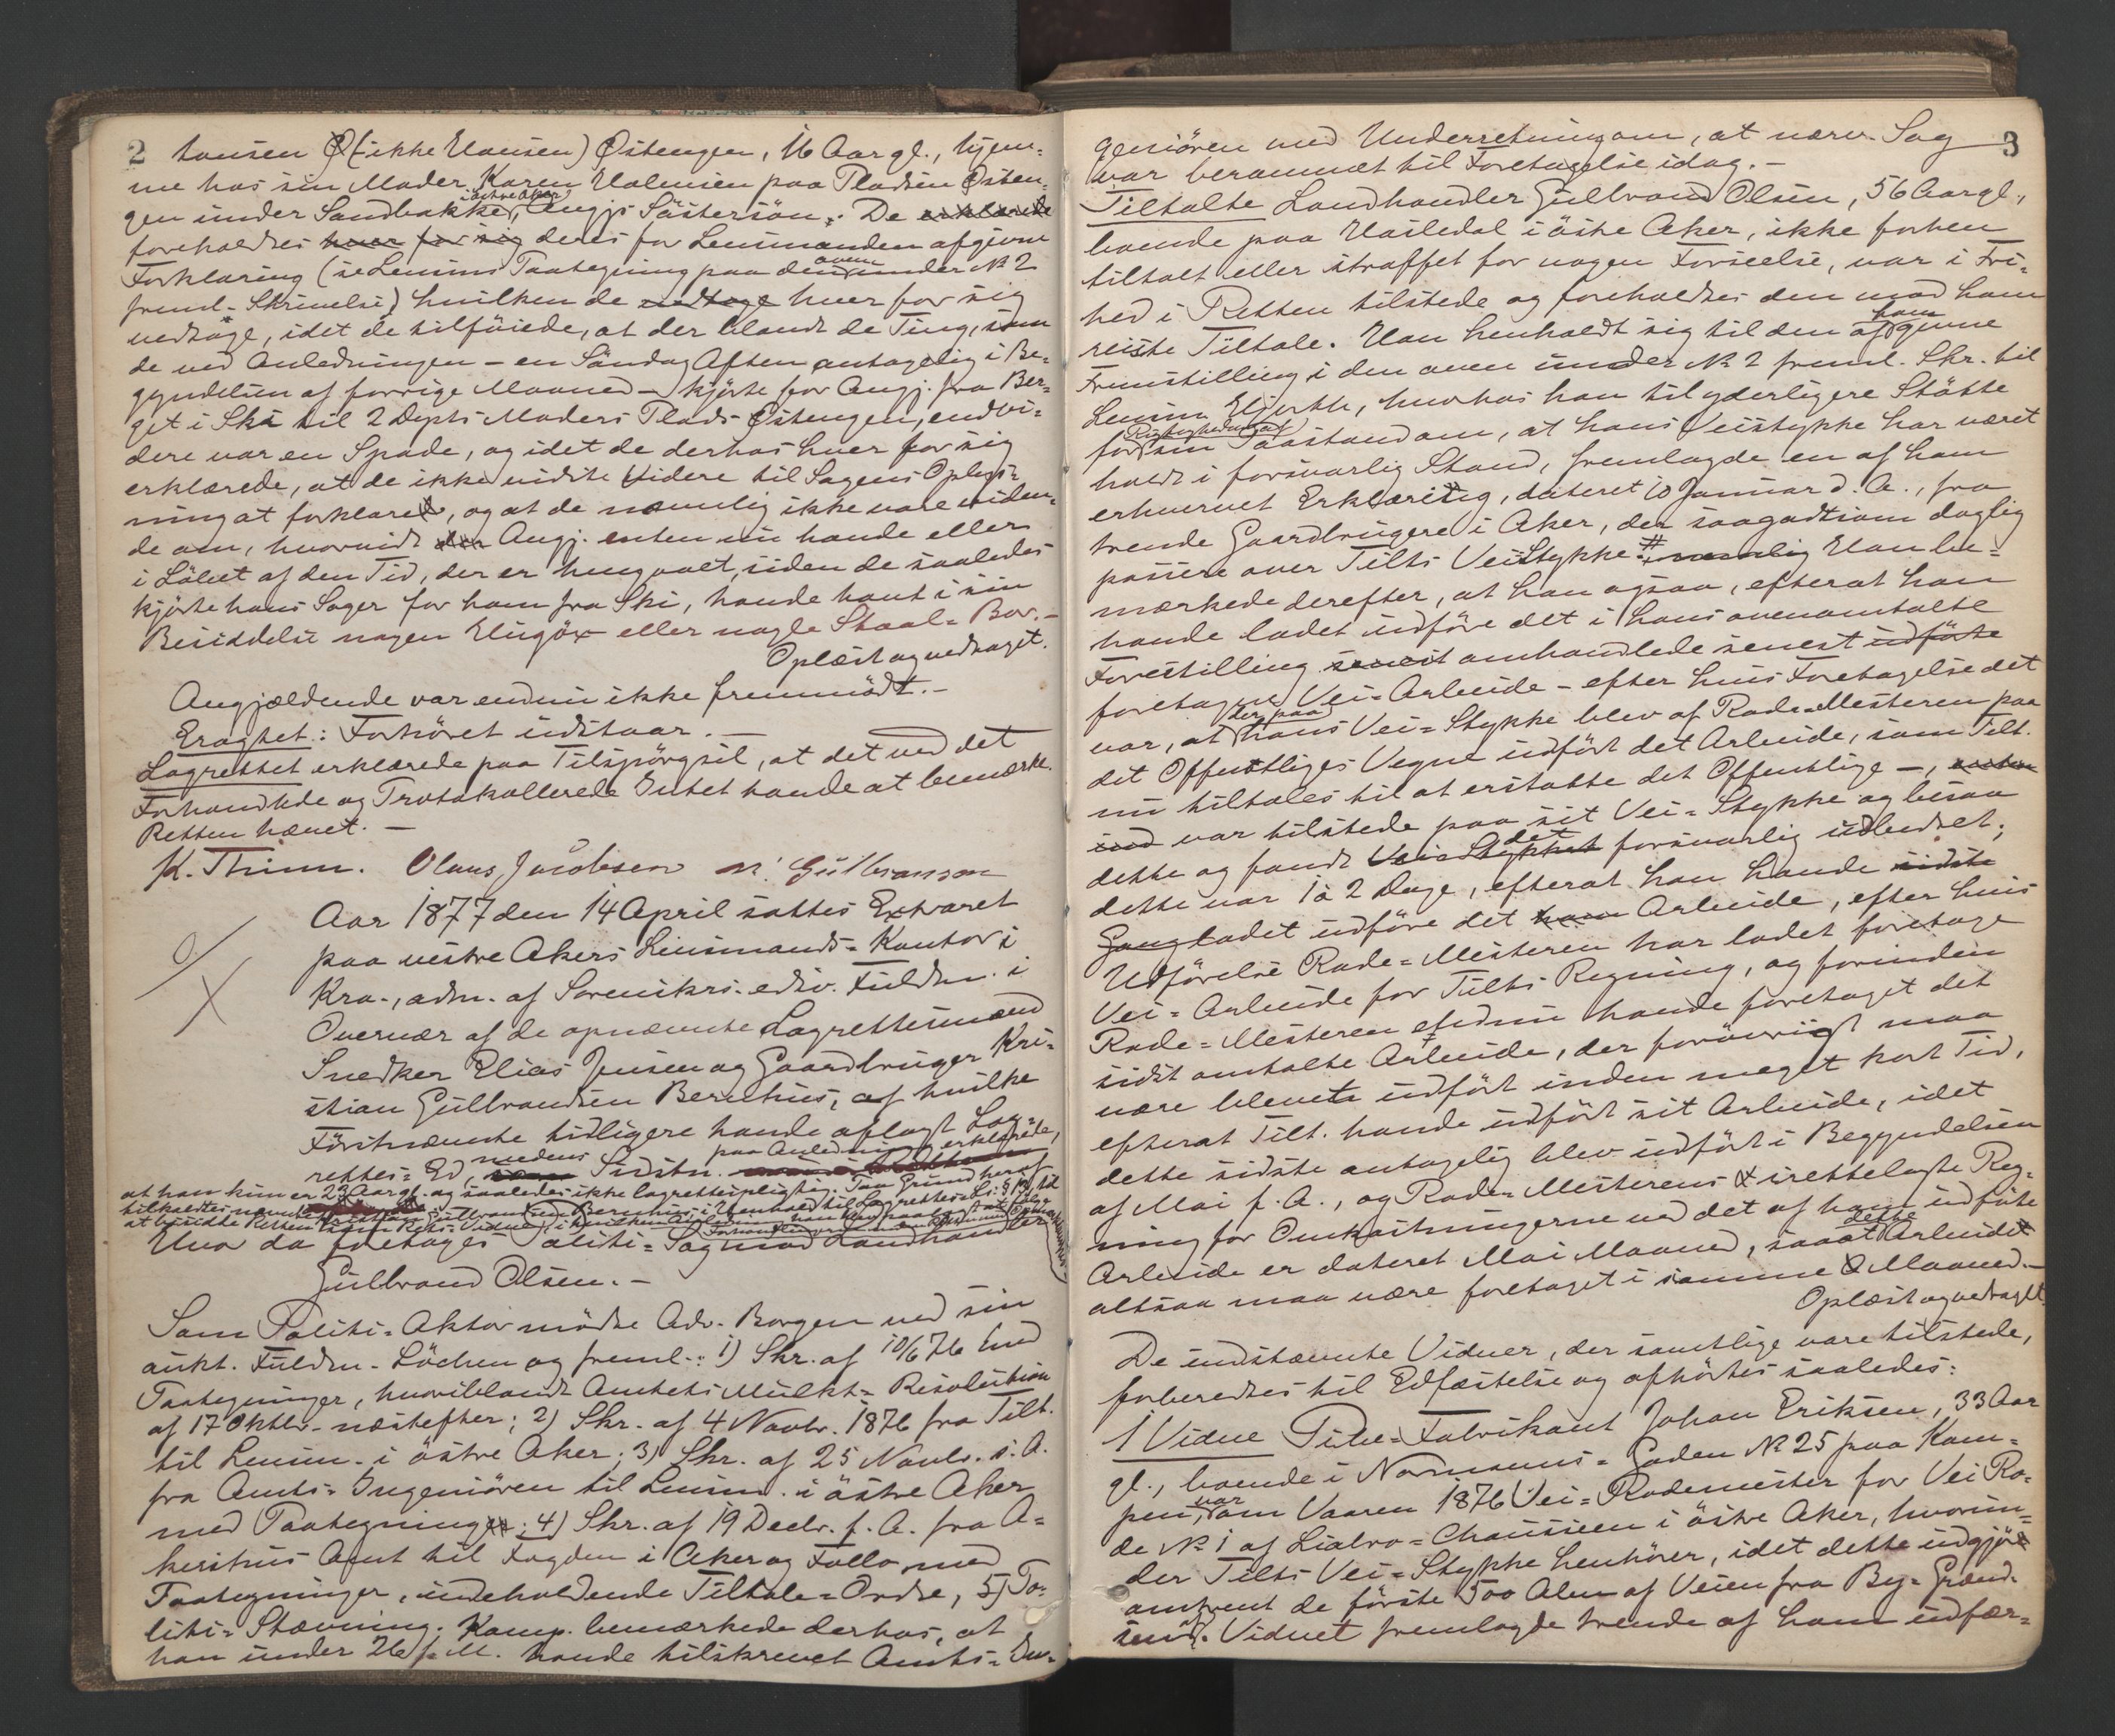 2
tansen (ikke Hansen) Østengen, 16 Aar gl., hjem-
me hos sin Moder Karen Halensen paa Pladsen Østen-
i østre Aker
gen under Sandbakken, Angjs Søstersøn. De erklærede
foreholdtes hver for sig deres for Lensmanden afgivne
Forklaring (se Lensms Paategning paa den oven under № 2
freml. Skrivelse) hvilken de vedtoge hver for sig
vedtoge, idet de tilføiede, at der blandt de Ting, som
de ved Anledningen - en Søndag Aften antagelig i Be-
gyndelsen af forrige Maaned - kjørte for Angj. fra Ber-
get i Ski til 2 Depts Moders Plads Østengen, endvi-
dere var en Spade, og idet de derhos hver for sig
erklærede, at de ikke vidste Videre til Sagens Oplys-
ning at forklare, og at de navnlig ikke vare viden-
de om, hvorvidt den Angj. enten nu havde eller
i Løbet af den Tid, der er hengaaet, siden de saaledes
kjørte hans Sager for ham fra Ski, havde havt i sin
Besiddelse nogen Hugöx eller nogle Staal-Bor.-
Oplæst og vedtaget.
Angjældende var endnu ikke fremmödt.-
Eragtet: Forhöret udstaar.-
Lagrettet erklærede paa Tilspörgsel, at det ved det
Forhandlede og Protokollerede Intet havde at bemærke.
Retten hævet.-
K. Thinn. Olaus Jacobsen M. Gulbransen
Aar 1877 den 14 April sattes Extraret
paa vestre Akers Lensmands-Kontor i
Kra., adm. af Sorenskrs. edsv. Fuldm. i
Overvær af de opnævnte Lagrettesmænd
Snedker Elias Jensen og Gaardbruger Kri-
stian Gulbrandsen Berghus, af hvilke
Förstnævnte tidligere havde aflagt Lag-
rettes-Ed, medens Sidstn. paa Anledning erklærede,
at han kun er 23 Aar gl. og saaledes ikke lagrettespligtig. Paa Grund heraf
Hvor da foretoges Politi-Sag mod Landhandler
Gulbrand Olsen.-
Som Politi-Aktor mödte Adv. Borgen ved sin
aukt. Fuldm. Löchen og freml.: 1) Skr. af 10/6 76 med
Paategninger, hvoriblandt Amtets Mulkt-Resolution
af 17 Oktbr. næstefter; 2) Skr. af 4 Novbr. 1876 fra Tilt.
til Lensm. i östre Aker; 3) Skr. af 25 Novbr. s. A.
fra Amts-Ingeniören til Lensm. i östre Aker
med Paategning; 4) Skr. af 19 Decbr. f. A. fra A-
kershus Amt til Fogden i Aker og Follo med
Paategninger, indeholdende Tiltale-Ordre, 5) Po-
liti-Stævning. Komp. bemærkede derhos, at
han under 26 f. M. havde tilskrevet Amts-In-
3
geniören med Underretning om, at nærv. Sag
var berammet til Foretagelse idag.-
Tiltalte Landhandler Gulbrand Olsen, 56 Aar gl.,
boende paa Hasledal i östre Aker, ikke forhen
tiltalt eller straffet for nogen Forseelse, var i Fri-
hed i Retten tilstede og foreholdtes den mod ham
reiste Tiltale. Han henholdt sig til den af ham givne
Fremstilling i den oven under № 2 freml. Skr. til
Lensm. Hjorth, hvorhos han til yderligere Stötte
for Rigtigheden af sin Paastand om, at hans Veistykke har været
holdt i forsvarlig Stand, fremlagde en af ham
erhvervet Erklæring, dateret 10 Januar d. A., fra
trende Gaardbrugere i Aker, der saagodtsom daglig
passere over Tilts Veistykke. # navnlig Han be-
mærkede derefter, at han ogsaa, efterat han
havde ladet udföre det i hans ovenomtalte
Forestilling senest omhandlede senest udförte
foretagne Vei-Arbeide - efter hvis Foretagelse det
var, at der paa hans Vei-Stykke blev af Rode-Mesteren paa
det Offentliges Vegne udfört det Arbeide, som Tilt.
nu tiltales til at erstatte det Offentlige -,
var tilstede paa sit Vei-Stykke og besaa
dette og fandt Vei-Stykket det forsvarlig udbedret;
dette var 1 à 2 Dage, efterat han havde sidste
Gang ladet udföre det ham Arbeide, efter hvis
Udförelse Rode-Mesteren har ladet foretage
Vei-Arbeide for Tilts Regning, og forinden
Rode-Mesteren endnu havde foretaget det
sidst omtalte Arbeide, der forövrigt maa
være blevet udfört inden meget kort Tid,
efterat Tilt. havde udfört sit Arbeide, idet
dette sidste antagelig blev udfört i Begyndelsen
af Mai f. A., og Rode-Mesterens irettelagte Reg-
ning for Omkostningerne ved det af ham udförte
Arbeide er dateret Mai Maaned, saa at dette Arbeide
altsaa maa være foretaget i samme Maaned.-
Oplæst og vedtaget.
De indstævnte Vidner, der samtlige vare tilstede,
forberedtes til Edfæstelse og afhörtes saaledes:
1 Vidne Pibe-Fabrikant Johan Eriksen, 33 Aar
gl., boende i Normanns-Gaden № 25 paa Kam-
pen, var om Vaaren 1876 Vei-Rodemester for Vei Ro-
de № 1 af Liabro-Chausseen i östre Aker, hvorun-
der Tilts Vei-Stykke henhörer, idet dette udgjör
omtrent de förste 500 Alen af Veien fra By-Grænd-
sen. Vidnet fremlagde trende af ham udfær-